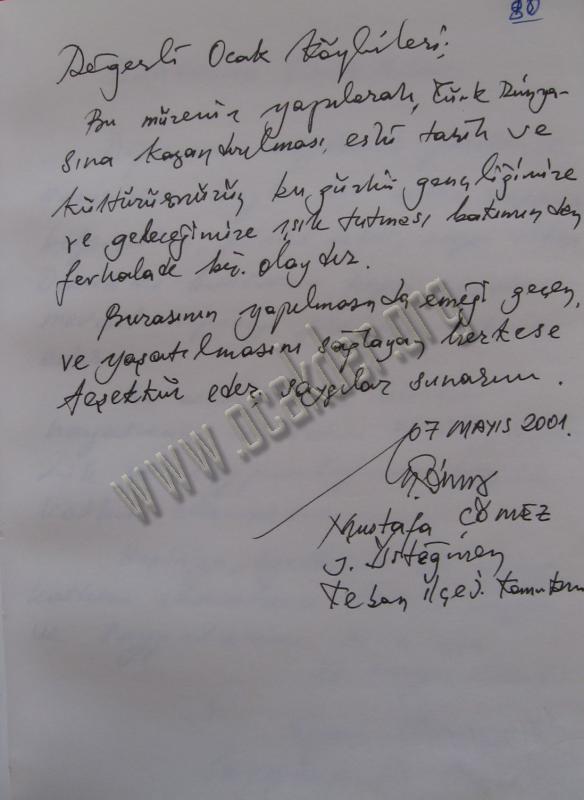 80
Değerli Ocak Köylüleri;
Bu müzenin yapılarak, Türk Dünya-
sına kazandırılması, eski tarih ve
kültürümüzün bugünkü gençliğimize
ve geleceğimize ışık tutması bakımından
fevkalade bir olaydır.
Burasının yapılmasında emeği geçen,
ve yaşatılmasını sağlayan herkese
teşekkür eder, saygılar sunarım.
07 MAYIS 2001.
Mustafa ÇÖMEZ
J. Üsteğmen
Keban İlçe J. Komutanı
www.ocakder.org